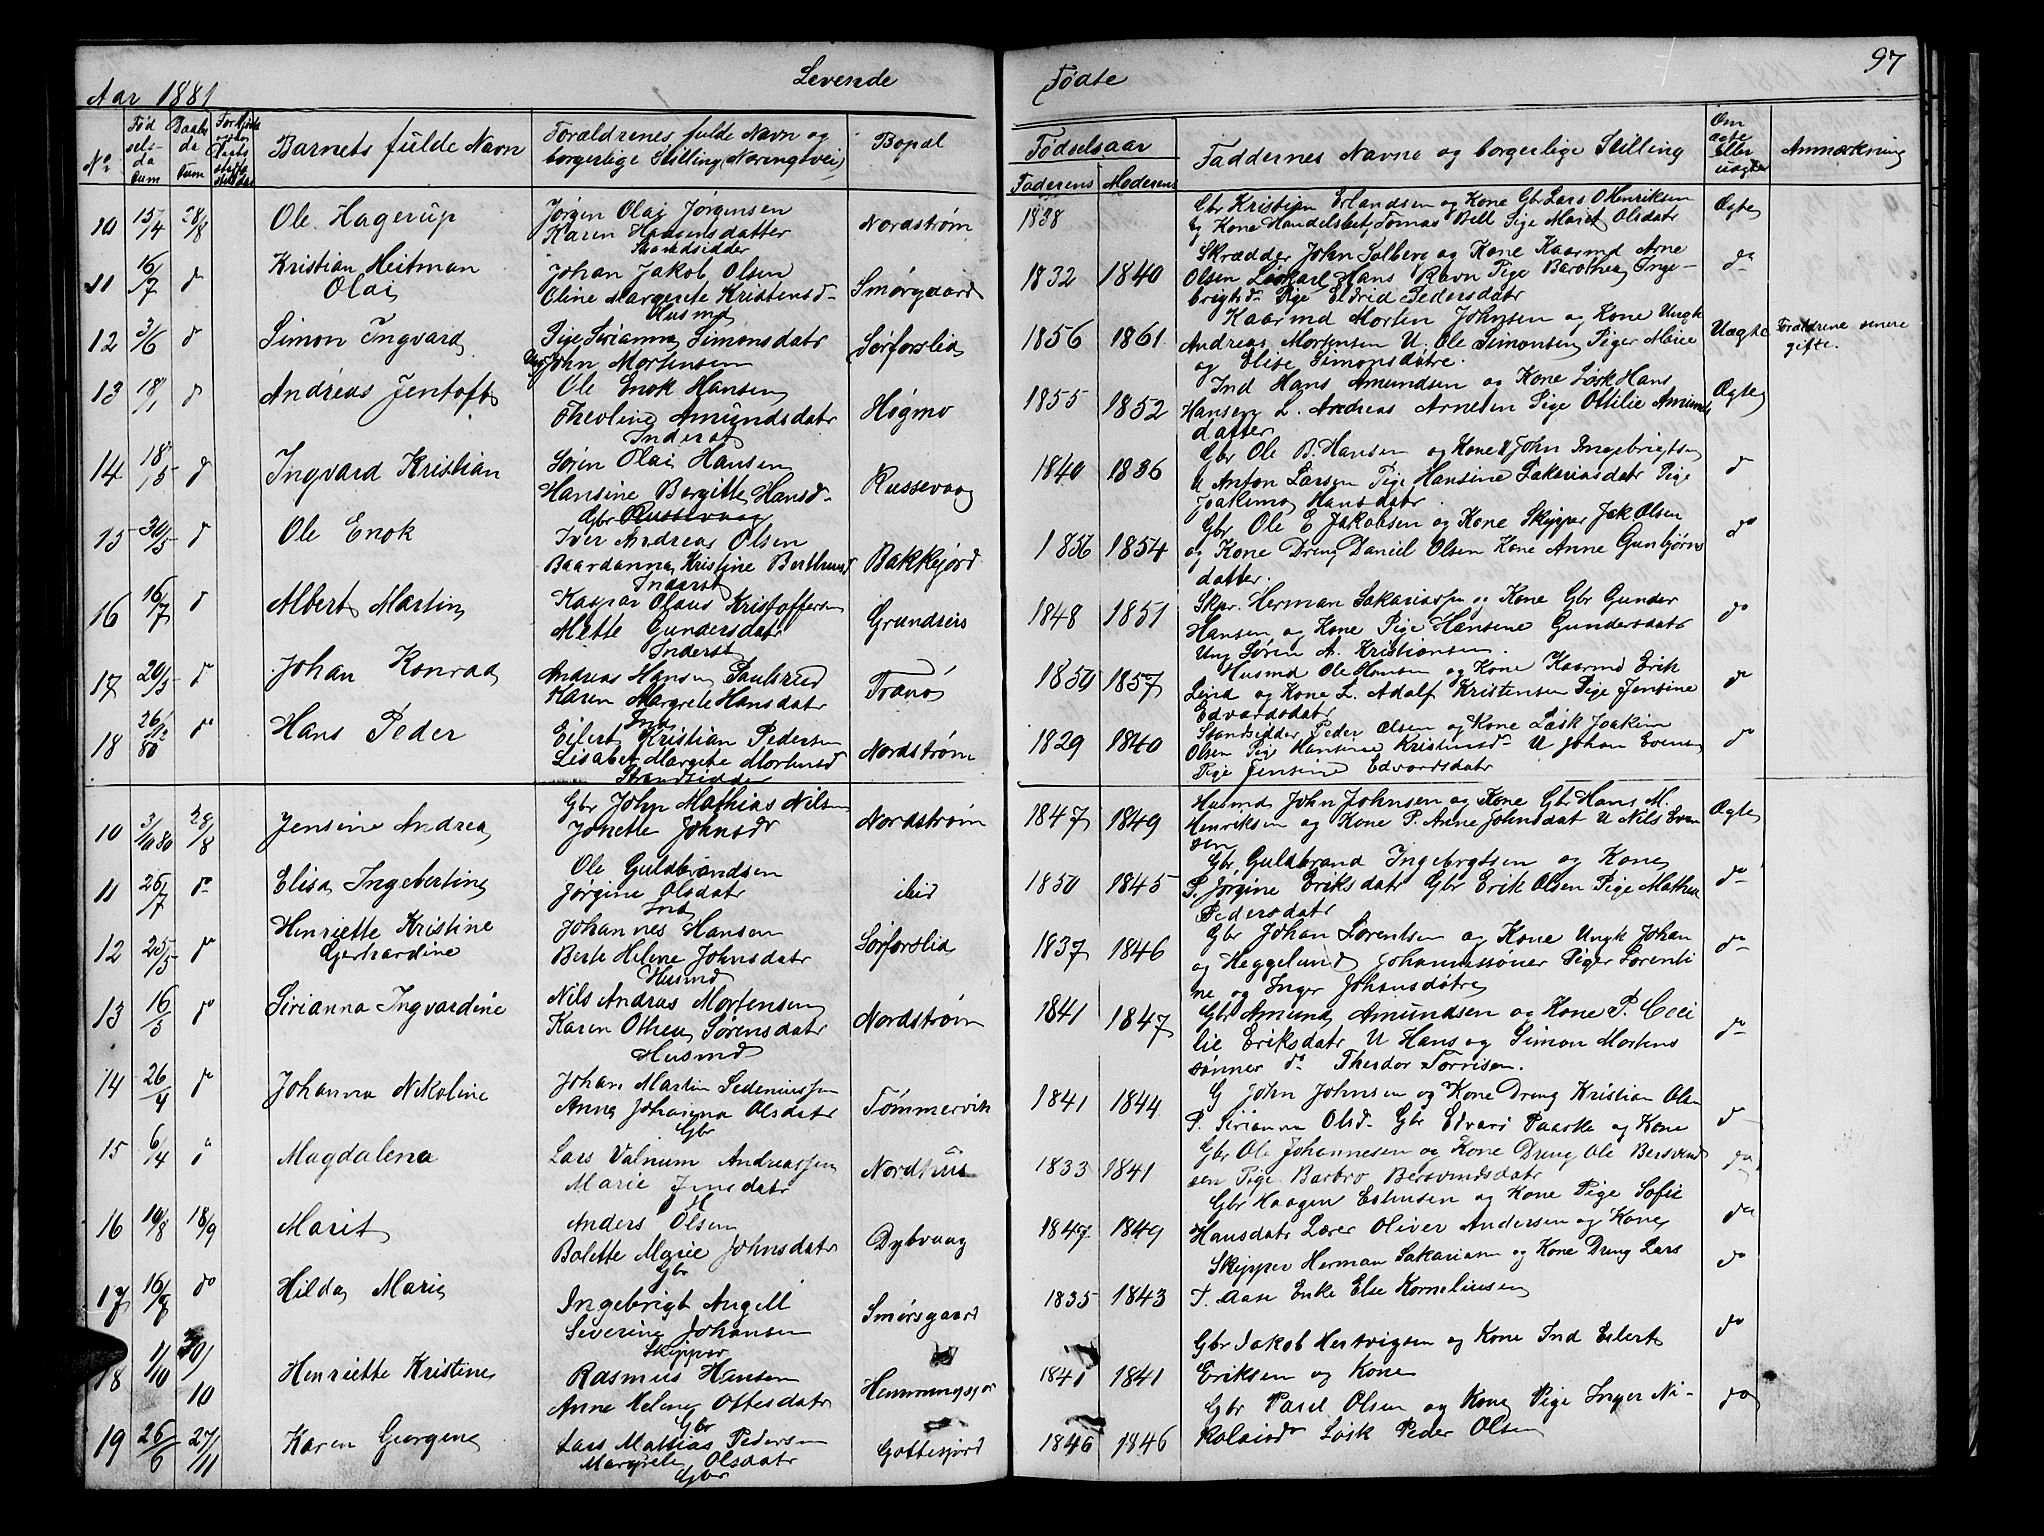 97
Aar 1881
Levende
Fødte
No
Fødselsdatum
Daabsdatum
Barnets fulde Navn
Forældrenes fulde Navn og
borgerlige Stilling (Næringsvei)
Bopæl
Fødselsaar
Faderens Moderens
Faddernes Navne og borgerlige Stilling
Om ægte eller uægte
Anmærkning
10 15/4 28/8 Ole Hagerup
Jørgen Olai Jørgensen
Karen Hansensdatter
Strandsidder
Nordstrøm
1838
Gbr Kristian Erlandsen og Kone Gbr Lars O Henriksen
og Kone Handelsbet. Tomas Bell Pige Marit Olsdatr
Ægte
11 16/7 do Kristian Heitman
Olai
Johan Jakob Olsen
Oline Margrete Kristensd.
Husmd
Smørgaard
1832 1840
Skrædder John Solberg og Kone Kaarmd Arne
Olsen Løskarl Hans Ravn Pige Barothea Inge-
brigtd. Pige Eldrid Pedersdatr
do
12 3/6 do Simon Ingvard
Pige Sirianna Simonsdatr
Ung John Mortensen
Sørforslid
1856 1861
Kaarmd Morten Johnsen og Kone Ungk
Andreas Mortensen U. Ole Simonsen Piger Marie
og Elise Simonsdøtre.
Uægte
Forældrene senere
gifte.
13 18/1 do Andreas Jentoft
Ole Enok Hansen
Theoline Amundsdatr
Inderst
Høgmo
1855 1852
Ind Hans Amundsen og Kone Løsk Hans
Hansen L. Andreas Arnesen Pige Ottilie Amunds
datter
Ægte
14 18/5 do Ingvard Kristian
Søren Olai Hansen
Hansine Borgitte Hansd.
Gbr Russevaag
Russevaag
1840 1836
Gbr Ole B. Hansen og Kone U John Ingebrigtsen
U Anton Larsen Pige Hansine Sakariasdatr Pige
Joakima Hansdatr
do
15 30/5 do Ole Enok
Iver Andreas Olsen
Baardanna Kristine Berthead
Inderst
Bakkejord
1856 1854
Gbr Ole E Jakobsen og Kone Skipper Jak Olsen
og Kone Dreng Daniel Olsen Kone Anne Gunbjørns
datter.
do
16 16/7 do Albert Martin
Kaspar Olaus Kristoffersen
Mette Gundersdatr
Inderst
Grundreis
1848 1851
Skpr. Herman Sakariassen og Kone Gbr Gunder
Hansen og Kone Pige Hansine Gundersdatr
Ung Søren A. Kristiansen.
do
17 20/5 do Johan Konrad
Andreas Hansen Paulsrud
Karen Margrete Hansdatr
Ind
Tranø
1850 1857
Husmd Ole Hansen og Kone Kaarmd Erik
Lind og Kone L. Adolf Kristensen Pige Jensine
Edvardsdatr
do
18 26/12 80 do Hans Peder
Eilert Kristian Pedersen
Lisabet Margrete Mortensd
Strandsidder
Nordstrøm
1829 1840
Standsidder Peder Olsen og Kone Løsk Joakim
Olsen Pige Hansine Kristensd. U Johan Evensen
Pige Jensine Edvardsdatr
do
10 3/10 80 28/8 Jensine Andrea
Gbr John Mathias Nilsen
Jonette Johnsdr
Nordstrøm
1847 1849
Husmd John Johnsen og Kone Gbr Hans M.
Henriksen og Kone P. Anne Johnsdat U Nils Even
sen
Ægte
11 26/7 do Elisa Ingebertine
Ole Guldbrandsen
Jørgine Olsdatr
Ind
ibid
1850 1845
Gbr Guldbrand Ingebrgtsen og Kone
P. Jørgine Eriksdatr Gbr Erik Olsen Pige Mathea
Pedersdatr
do
12 25/5 do Henriette Kristine
Gerhardine
Johannes Hansen
Berte Helene Johnsdatr
Husmd
Sørforslid
1837 1846
Gbr Johan Lorentsen og Kone Ungk Johan
og Heggelund Johannessøner Piger Lorenti
ne og Inger Johansdøtre
do
13 16/3 do Sirianna Ingvardine
Nils Andreas Mortensen
Karen Othea Sørensdatr
Husmd
Nordstrøm
1841 1847
Gbr Amund Amundsen og Kone P. Ceci
lie Eriksdatr U Hans og Simon Mortens
sønner do Theodor Torrisen.
do
14 26/4 do Johanna Nikoline
Johan Martin Sedeniussen
Anna Johanna Olsdatr
Gbr
Tømmervik
1841 1844
G John Johnsen og Kone Dreng Kristian Olsen
P. Sirianna Olsd. Gbr Edvard Paaske og Kone
do
15 6/4 do Magdalena
Lars Valnum Andreassen
Marie Jensdatr
H
Nordhus
1833 1841
Gbr Ole Johannesen og Kone Dreng Ole Bersvend
sen Pige Barbro Bersvendsdatr
do
16 10/8 18/9 Marit
Anders Olsen
Bolette Marie Johnsdatr
Gbr
Dybvaag
1847 1849
Gbr Haagen Estensen og Kone Pige Sofie
Hansdatr Lærer Oliver Andersen og Kone
do
17 16/8 do Hilda Marie
Ingebrigt Angell
Severine Johansen
Skipper
Smørsgaard
1835 1843
Skipper Herman Sakariasen og Kone Dreng Lars
T. Aase Enke Else Korneliusen
do
18 1/10 30/10 Henriette Kristine
Rasmus Hansen
Anne Helene Ottesdatr
Gbr
Hemmingsjor
1841 1841
Gbr Jakob Hertvigsen og Kone Ind Eilert
Eriksen og Kone
do
19 26/6 27/11 Karen Georgine
Lars Mathias Pedersen
Margrete Olsdatr
Gbr
Gottesjord
1846 1846
Gbr Paul Olsen og Kone Pige Inger Ni-
kolaisdr Løsk Peder Olsen
do